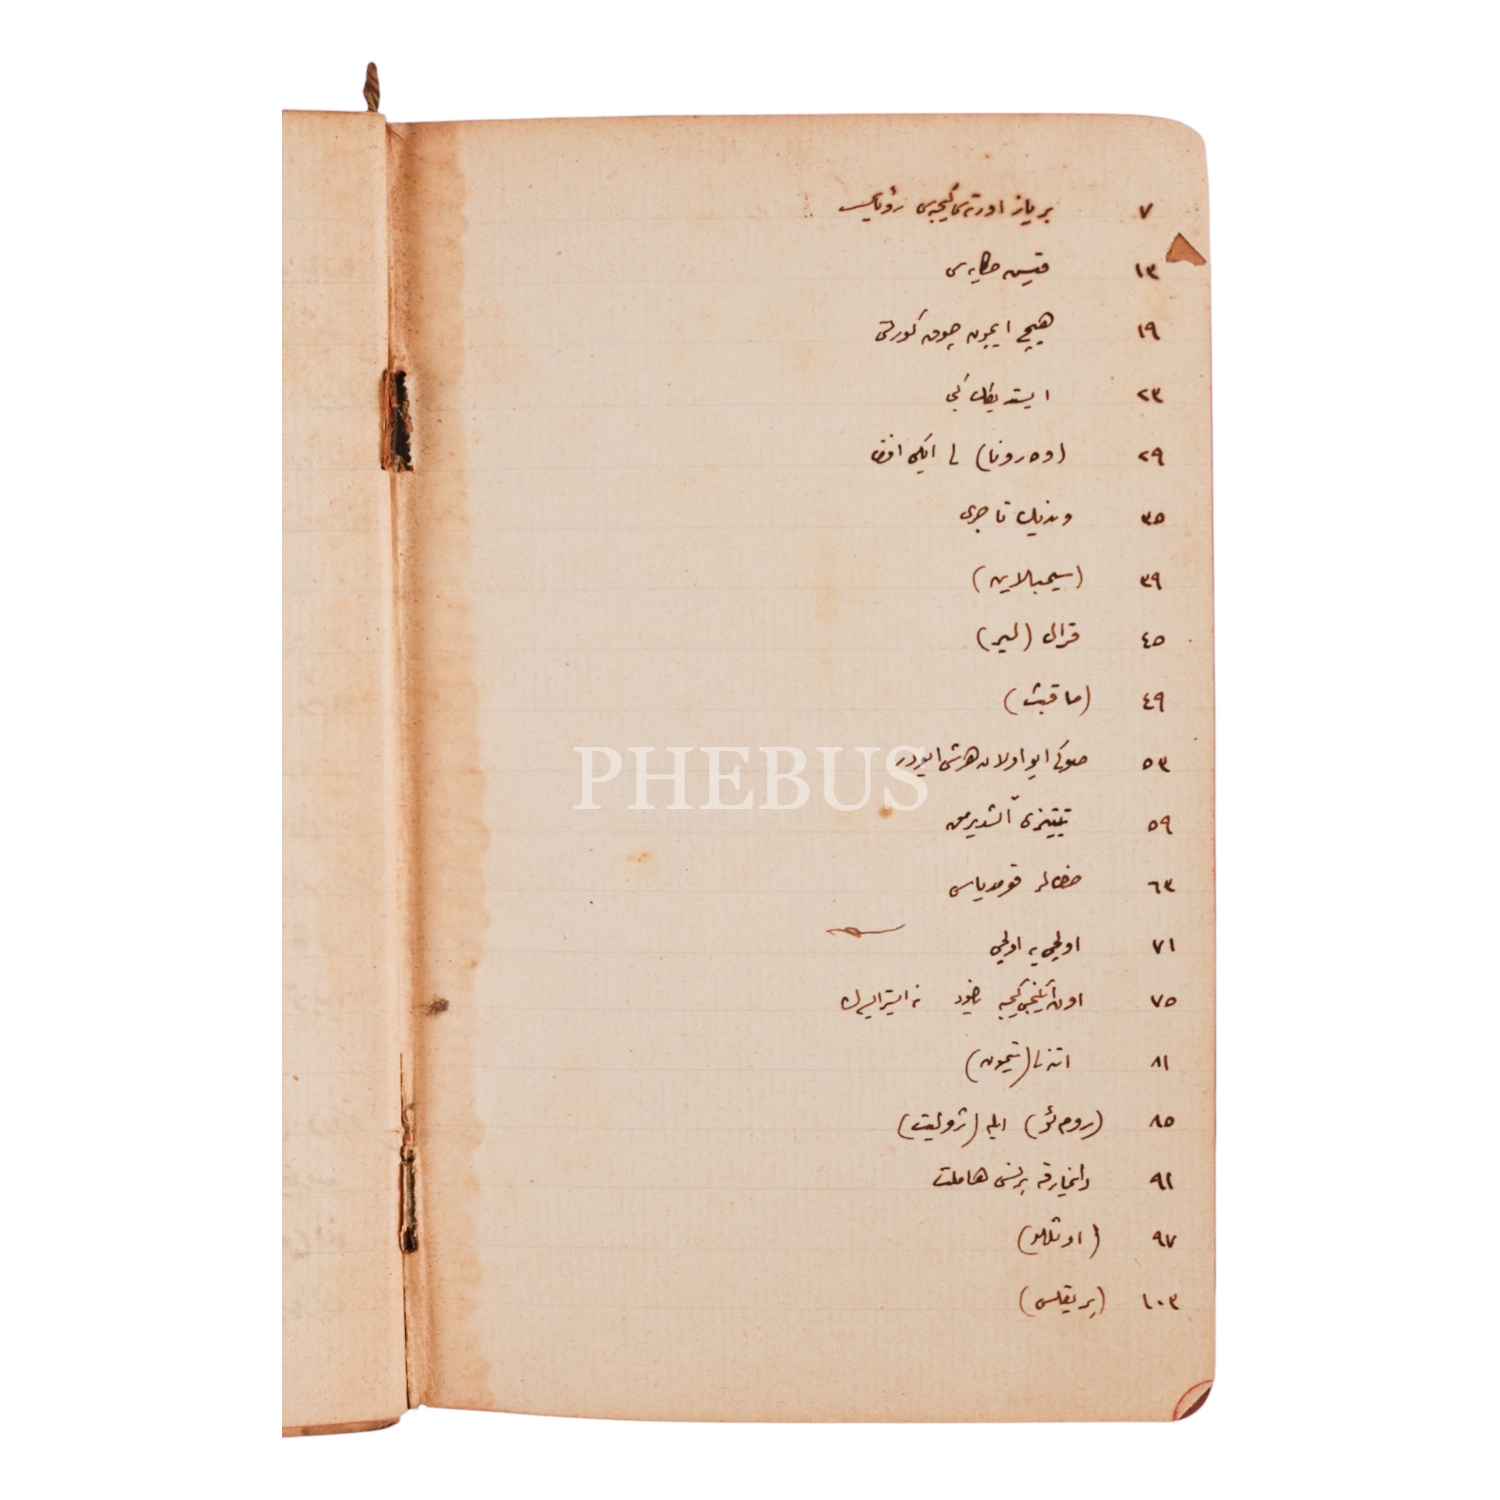 ٧ بر ياز اورتەسی گیجەسی رؤیاسی
١٣ قیش حكایەسی
١٩ هیچ ایچون چوق گورلتی
٢٣ ایستدیگڭز گبی
٢٩ (وەرونا) لی ایكی افندی
٣٥ وندیك تاجری
٣٩ (سیمبالاین)
٤٥ قرال (لیر)
٤٩ (ماقبث)
٥٣ صوڭی ایو اولان هر شی ایودر
٥٩ تیتیزی آلشدیرمق
٦٣ خطالر قومدیاسی
٧١ اولچی یە اولچی
٧٥ اون ایكنجی گیجە یاخود نە ایسترایسەڭ
٨١ اتنەلی (تیمون)
٨٥ (رومئو) ایلە (ژولیت)
٩١ دانیمارقە پرنسی هاملت
٩٧ (اوتللو)
١٠٣ (پریقلس)
PHEBUS